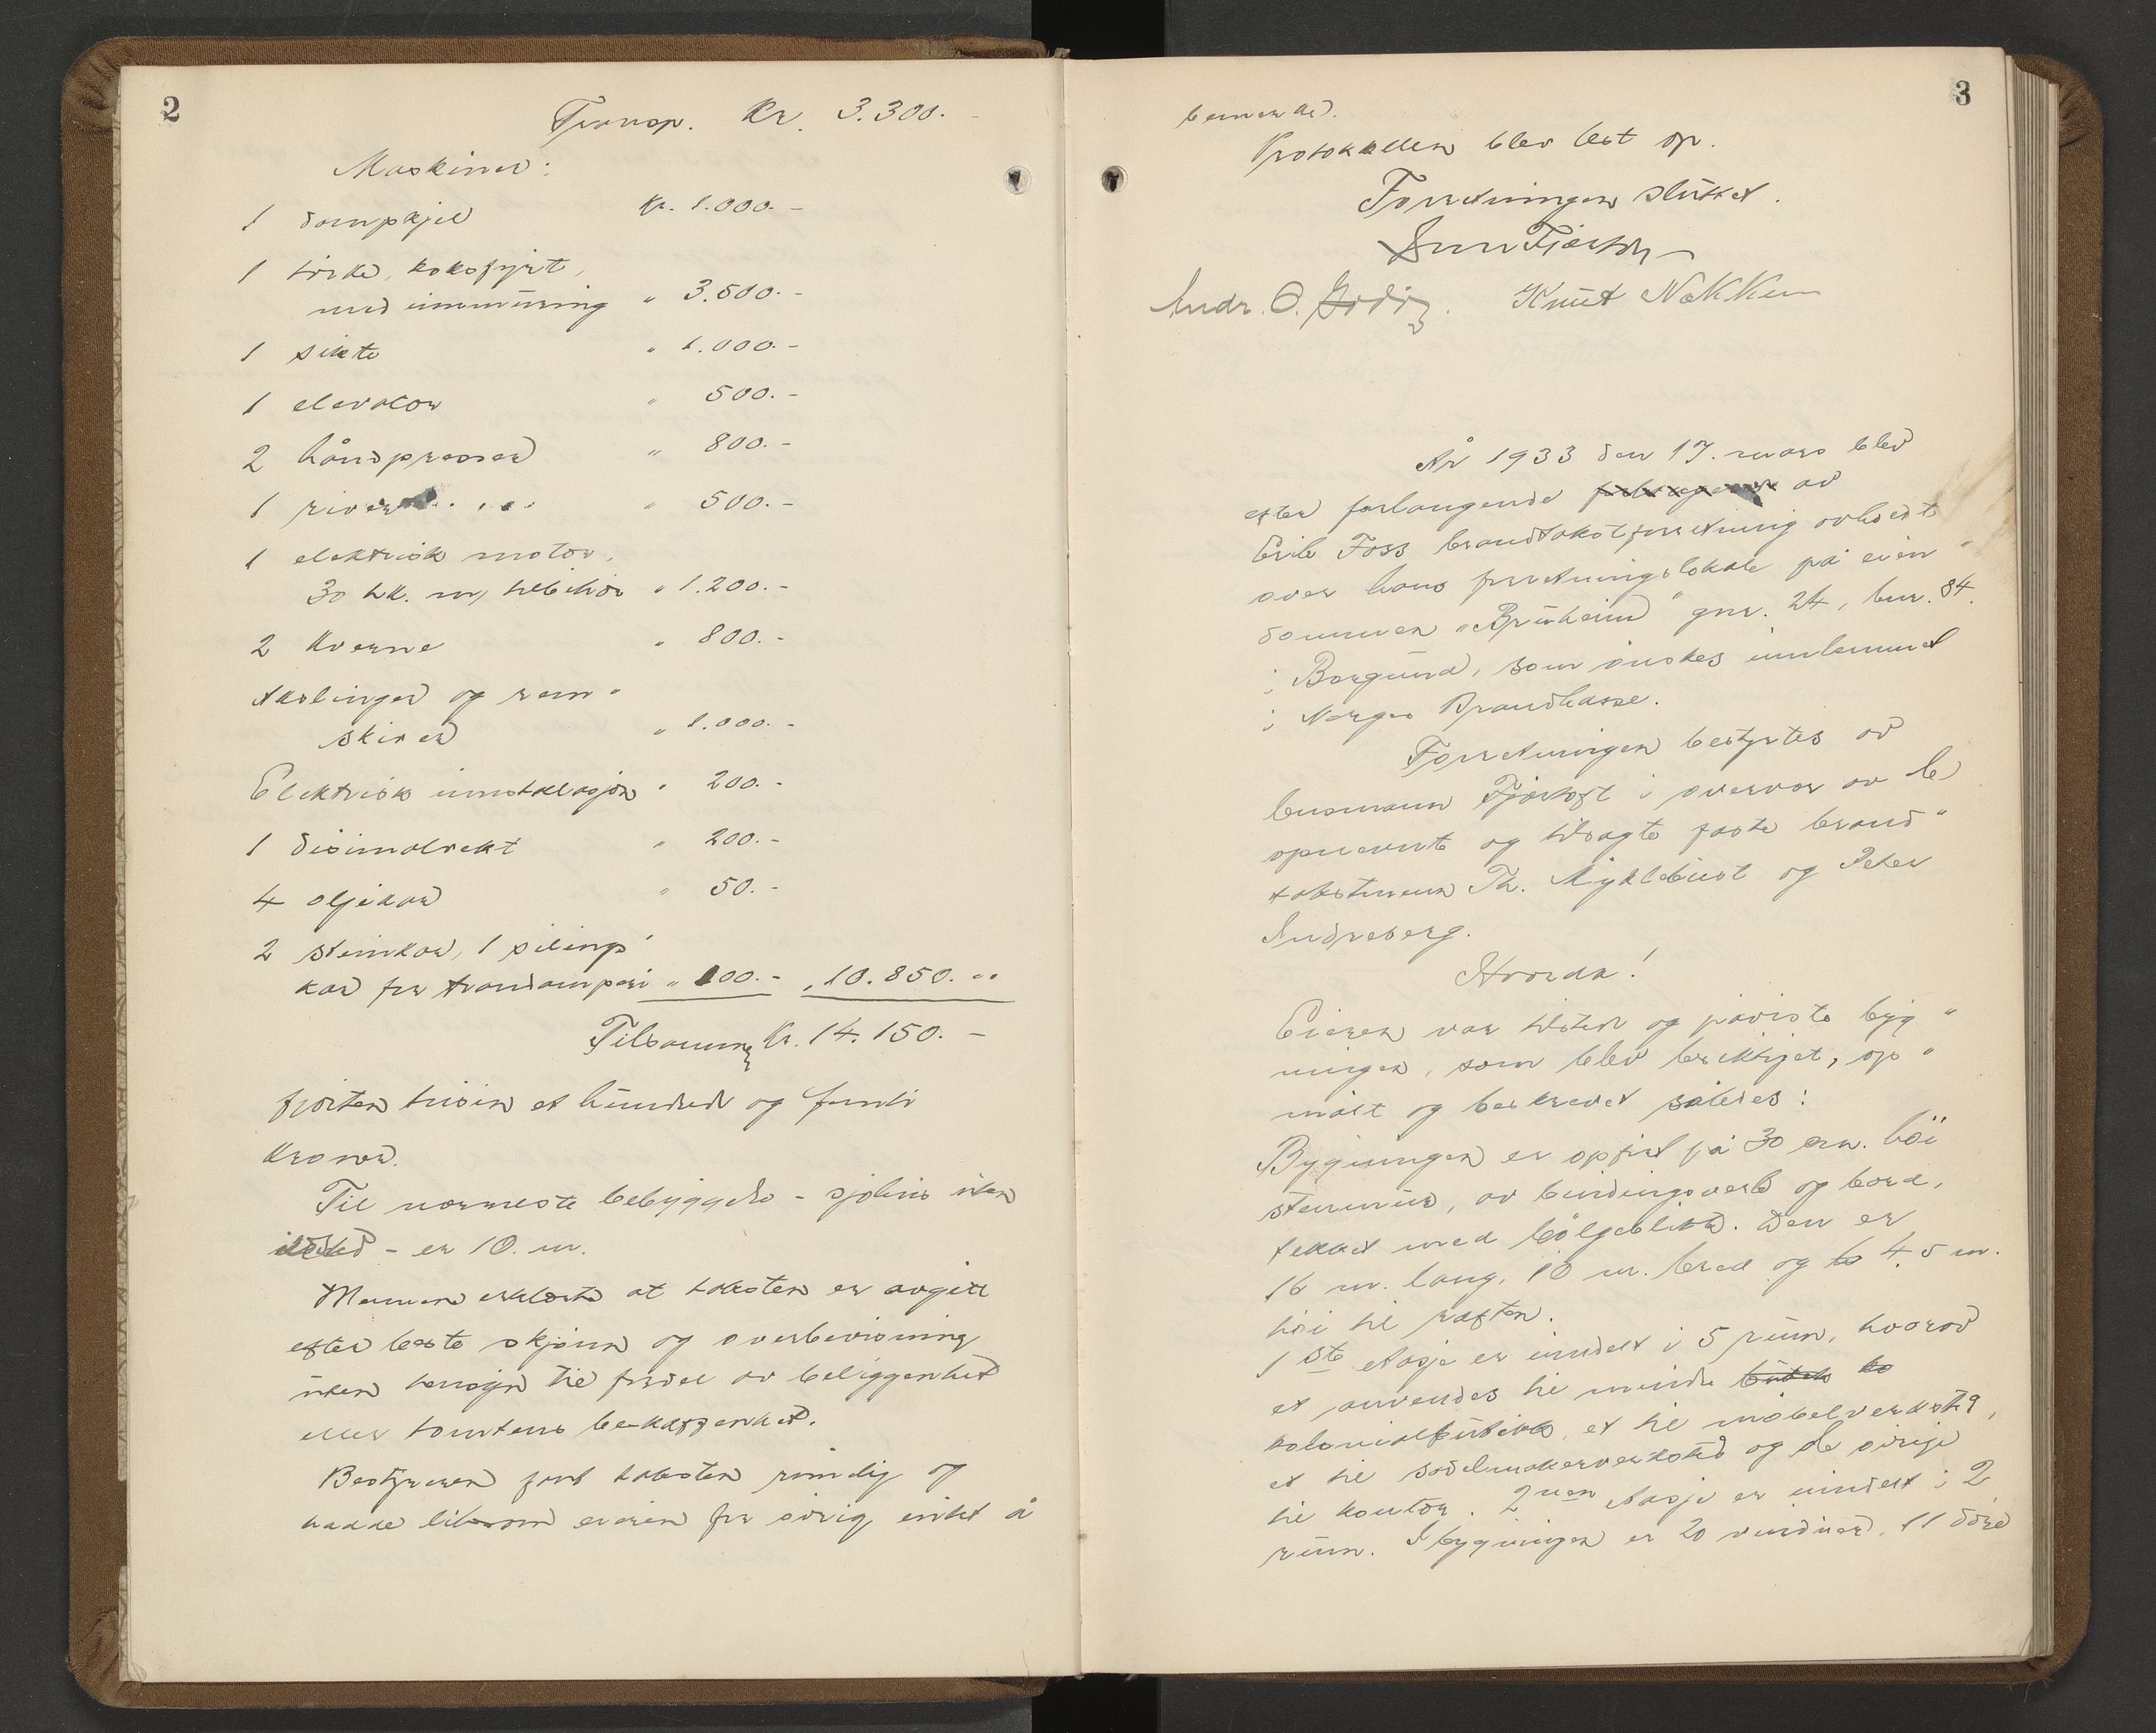 2
Transp. Kr. 3.300.-
Maskiner:
1 dampkjel Kr. 1.000.-
1 tørke, koksfyrt,
med innmuring " 3.500.-
1 sikte " 1.000.-
1 elevator " 500.-
2 håndpresser " 800.-
1 river " 500.-
1 elektrisk motor,
30 hk. m/ tilbehør " 1.200.-
2 kverne " 800.-
Akslinger og rem-
skiver " 1.000.-
Elektrisk innstallasjon " 200.-
1 disimalvekt " 200.-
4 oljekar " 50.-
2 steinkar, 1 silings-
kar for trandamperi " 100.- " 10.850.-
Tilsammen Kr. 14.150.-
fjorten tusin et hundrede og femti
kroner.
Til nærmeste bebyggelse - sjøhus uten
ildsted - er 10 m.
Mennene erklærte at taksten er avgitt
efter beste skjønn og overbevisning
uten hensyn til fordel av beliggenhet
eller tomtens beskaffenhet.
Bestyreren fant taksten rimelig og
hadde likesom eieren for øvrig intet å
3
bemerke.
Protokollen blev lest op.
Forretningen sluttet.
Fjørtoft
Andr. O. Knut Nakken
År 1933 den 17. mars blev
efter forlangende av
Erik Foss brandtakstforretning avholdt
over hans forretningslokale på eien-
dommen "Bruheim" gnr. 24, bnr. 84.
i Borgund, som ønskes innlemmet
i Norges Brandkasse.
Forretningen bestyrtes av
lensmann Fjørtoft i overvær av de
opnevnte og tilsagte faste brand-
takstmenn Th. Myklebust og Peter
Andreberg.
Hvorda!
Eieren var tilstede og påviste byg-
ningen, som blev besiktiget, op-
målt og beskrevet således:
Bygningen er opført på 30 cm. høi
stenmur, av bindingsverk og bord,
tekket med bølgeblikk. Den er
16 m. lang, 10 m. bred og to 4.5 m.
høi til raften.
1ste etasje er inndelt i 5 rum, hvorav
et anvendes til mindre butik to
kolonialbutikk, et til møbelverksted,
et til sadelmakerverksted og de øvrige
til kontor. 2nen etasje er inndelt i 2
rum. I bygningen er 20 vinduer, 11 døre